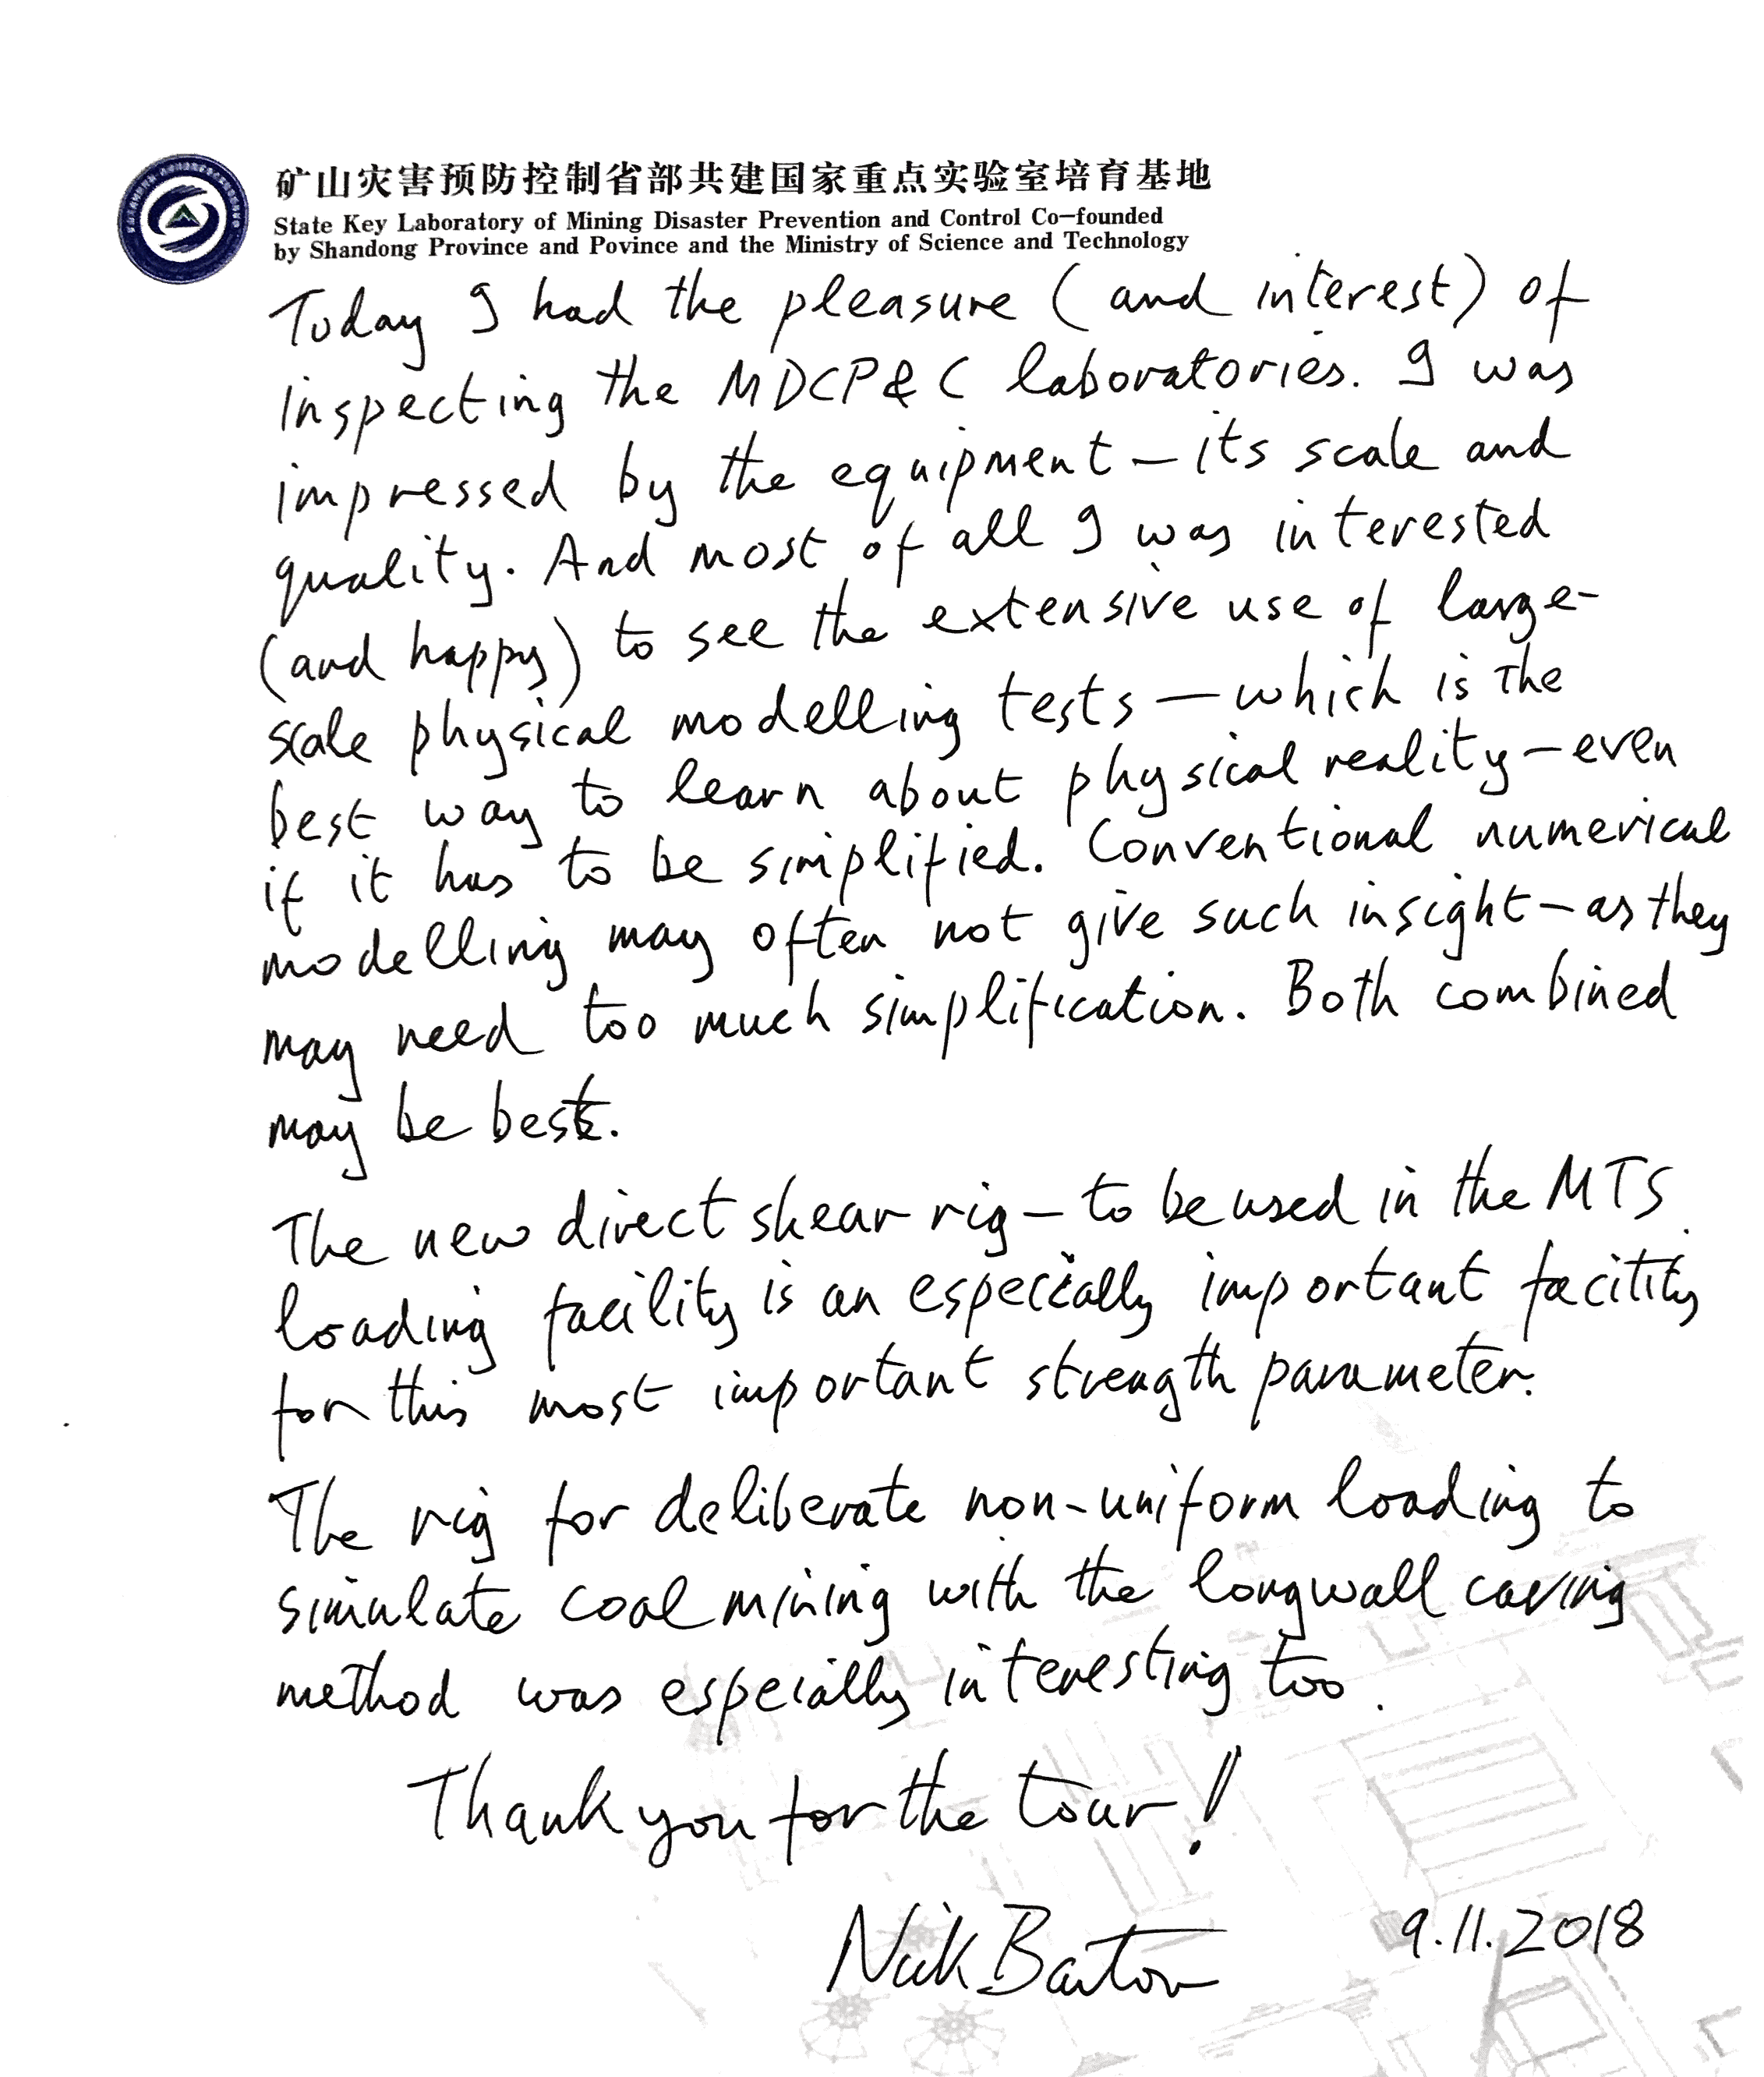 矿山灾害预防控制省部共建国家重点实验室培育基地
State Key Laboratory of Mining Disaster Prevention and Control Co-founded
by Shandong Province and Povince and the Ministry of Science and Technology
Today I had the pleasure (and interest) of
inspecting the MDCP&C laboratories. I was
impressed by the equipment – its scale and
quality. And most of all I was interested
(and happy) to see the extensive use of large-
scale physical modelling tests – which is the
best way to learn about physical reality – even
if it has to be simplified. Conventional numerical
modelling may often not give such insight – as they
may need too much simplification. Both combined
may be best.
The new direct shear rig – to be used in the MTS
loading facility is an especially important facility
for this most important strength parameter.
The rig for deliberate non-uniform loading to
simulate coal mining with the longwall caving
method was especially interesting too.
Thank you for the tour!
Nick Barton 9.11.2018